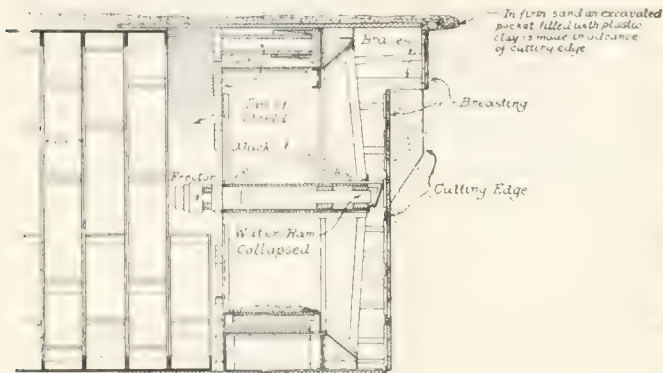 In firm sand an excavated
pocket filled with plastic
clay is made in advance
of cutting edge
Braces
Breasting
Erector
Cutting Edge
Water Ram
Collapsed